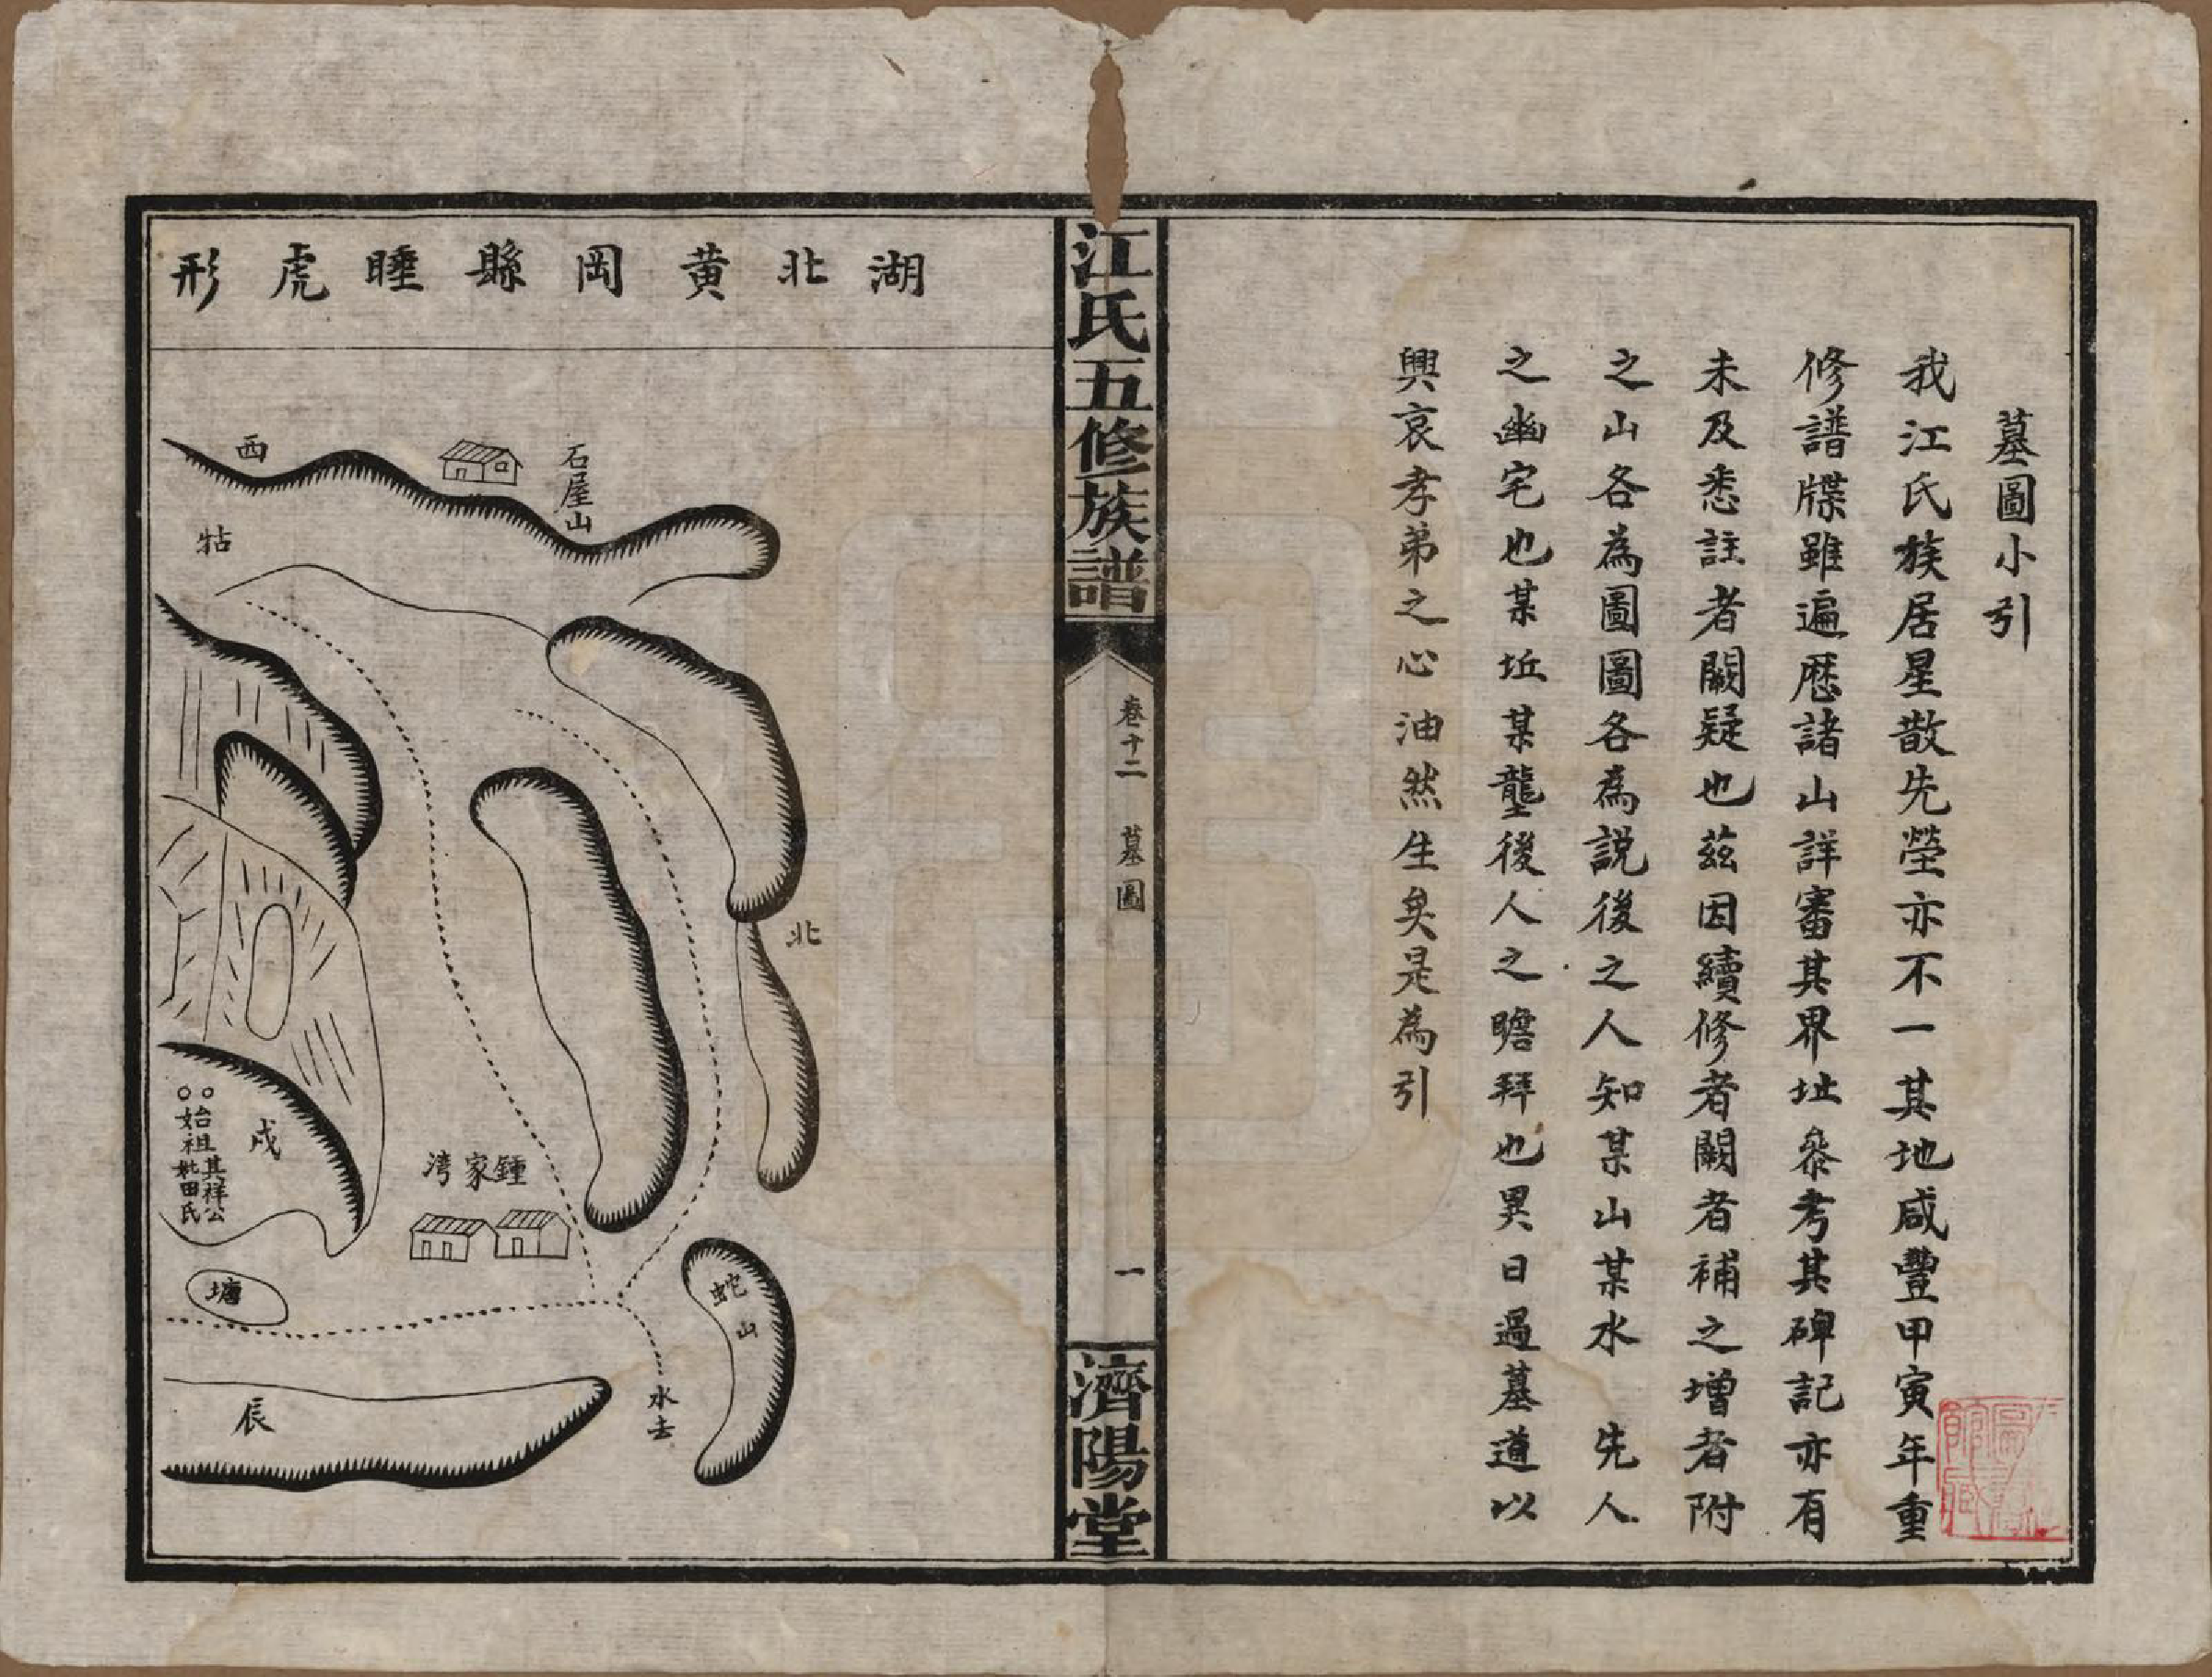 墓圖小引
我江氏族居星散先塋亦不一其地咸豐甲寅年重
修譜牒雖遍歷諸山詳審其界址叅考其碑記亦有
未及悉註者闕疑也茲因續修者闕者補之增者附
之山各為圖圖各為説後之人知某山某水 先人
之幽宅也某坵某壟後人之瞻拜也異日過墓道以
興哀孝弟之心油然生矣是為引
江氏五修族譜
卷十二 墓圖
一
濟陽堂
湖北黄岡縣睡虎形
石屋山
西
牯
北
戌
始祖其祥公妣田氏
鍾家湾
塘
蛇山
水去
辰